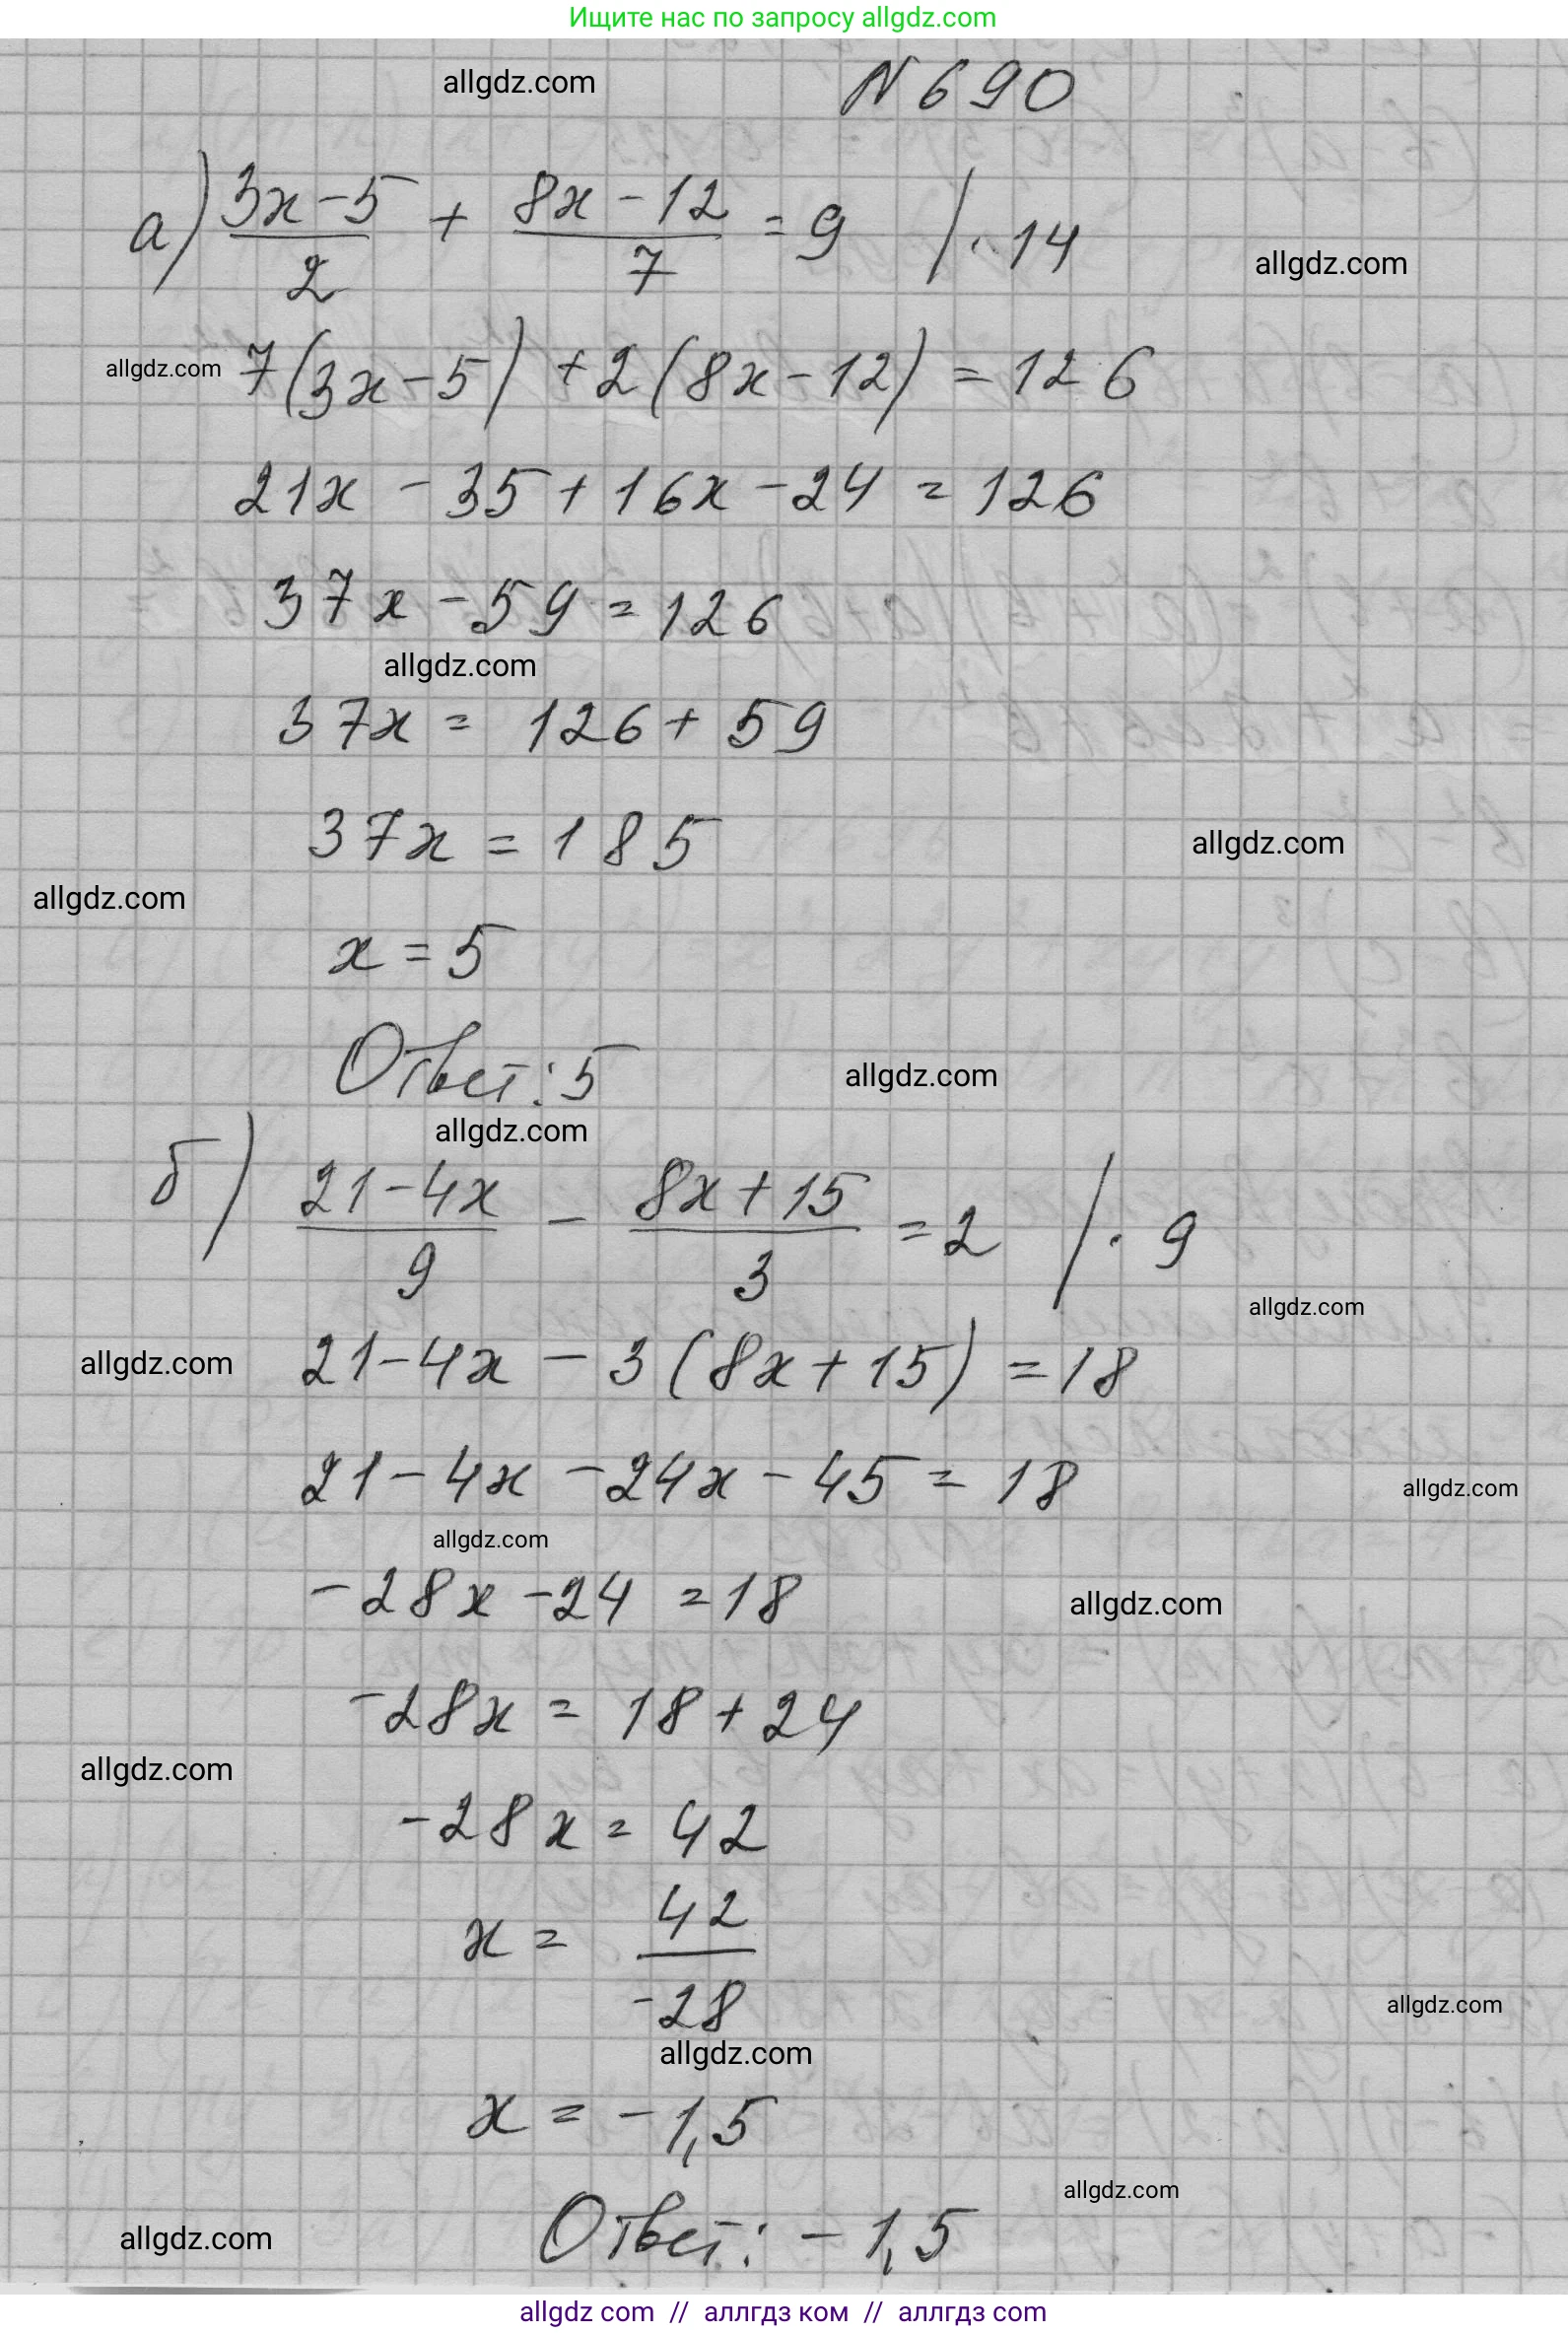 Ищите нас по запросу allgdz.com
allgdz.com
N 690
а) (3x-5)/2 + (8x-12)/7 = 9 /·14
allgdz.com
allgdz.com
7(3x-5)+2(8x-12)=126
21x-35+16x-24=126
37x-59=126
allgdz.com
37x=126+59
37x=185
allgdz.com
allgdz.com
x=5
Ответ: 5
allgdz.com
allgdz.com
б) (21-4x)/9 - (8x+15)/3 = 2 /·9
allgdz.com
allgdz.com
21-4x-3(8x+15)=18
21-4x-24x-45=18
allgdz.com
allgdz.com
-28x-24=18
allgdz.com
-28x=18+24
allgdz.com
-28x=42
x=42/-28
allgdz.com
allgdz.com
x=-1,5
allgdz.com
Ответ: -1,5
allgdz.com
allgdz com // аллгдз ком // аллгдз com